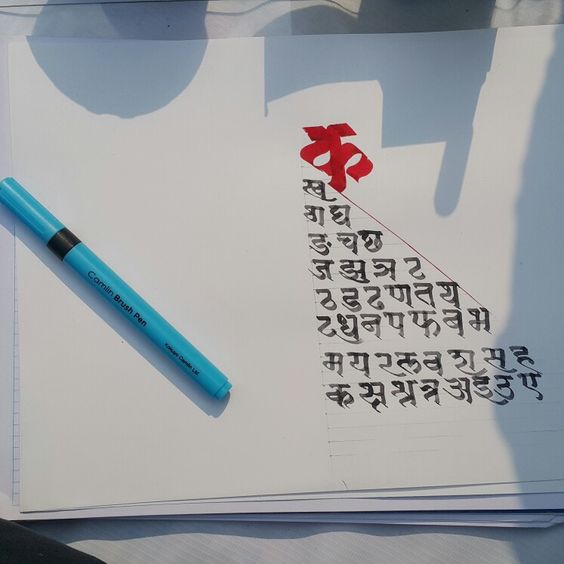 क
ख
ग घ
ङ च छ
ज झ ञ ट
ठ ड ढ ण त थ
द ध न प फ ब भ
म य र ल व श स ह
क श्र त्र अ इ उ ए
Camlin Brush Pen
Kokuyo Camlin Ltd.